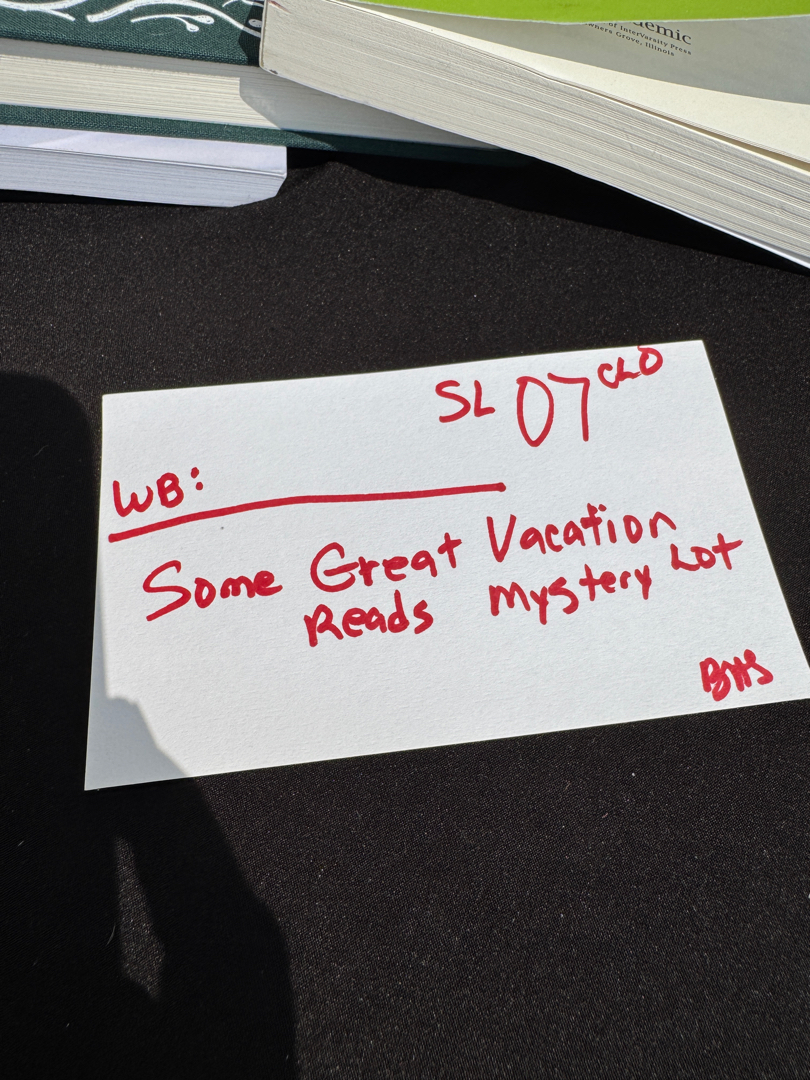 demic
of InterVarsity Press
wners Grove, Illinois
SL 07 CLO
WB:
Some Great Vacation
Reads Mystery Lot